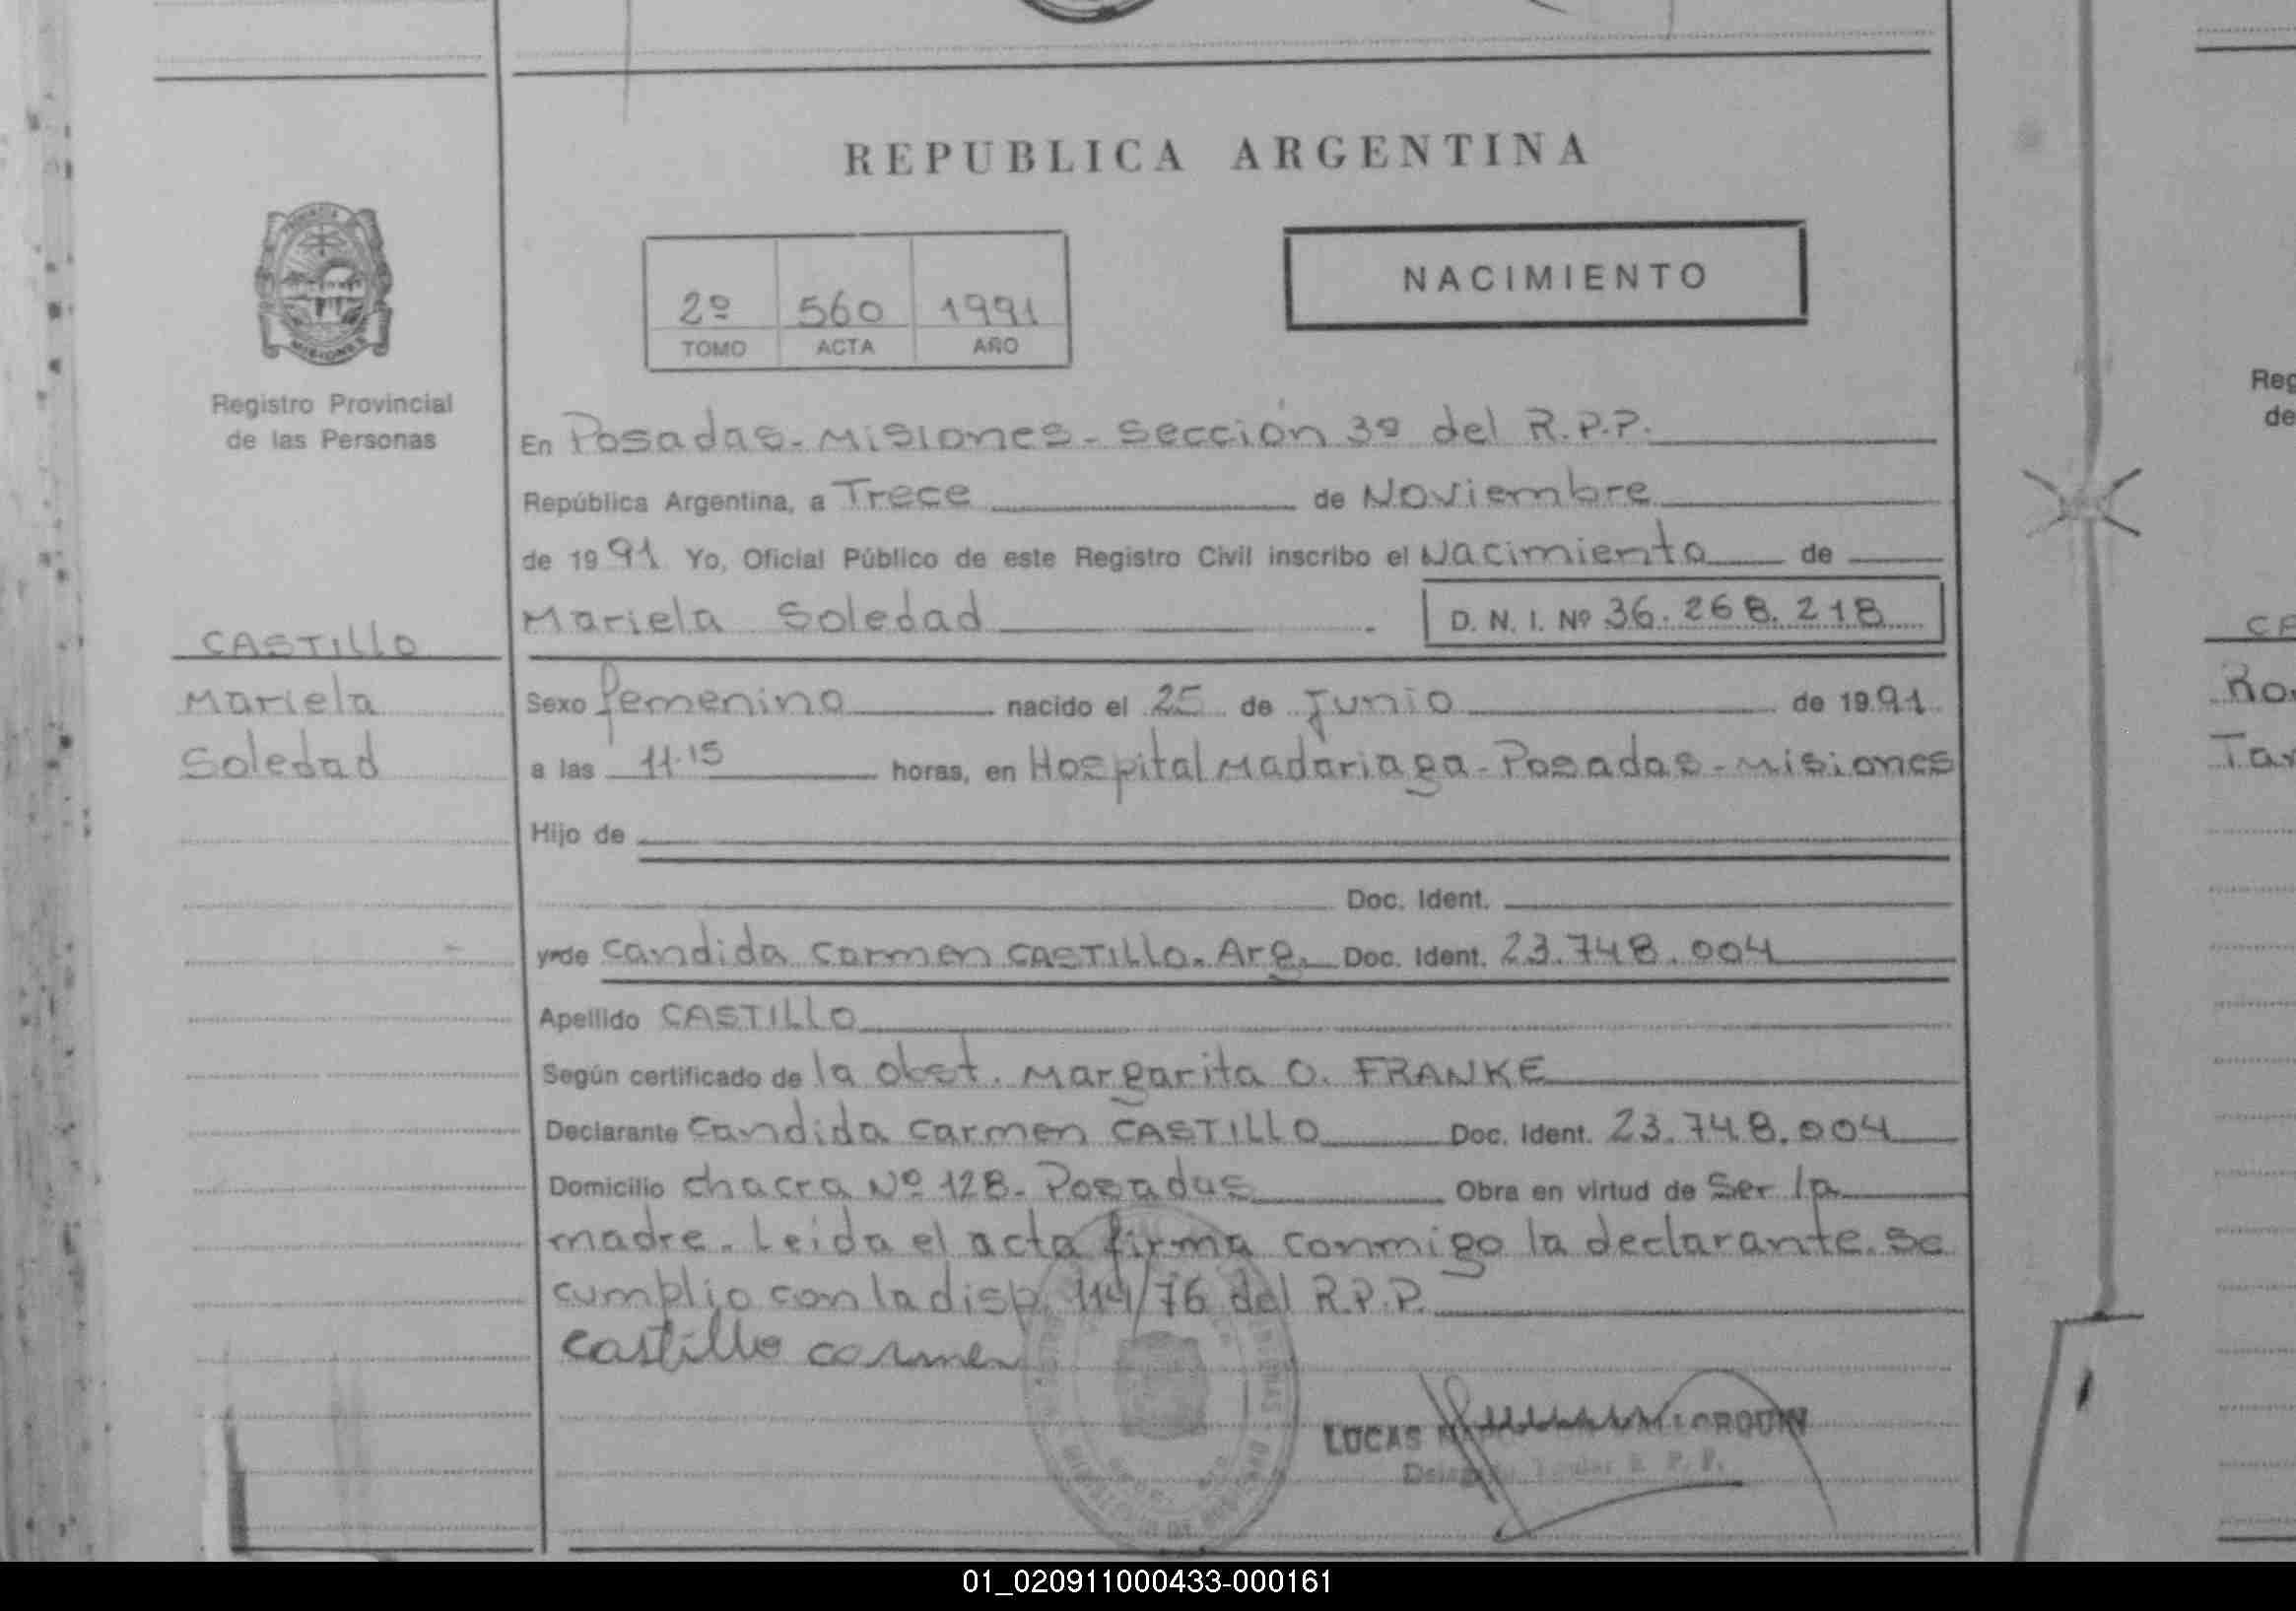 REPUBLICA ARGENTINA
NACIMIENTO
2º 560 1991
TOMO ACTA AÑO
MISIONES
Registro Provincial
de las Personas
En Posadas - Misiones - Sección 3º del R.P.P.
República Argentina, a Trece de Noviembre
de 1991 Yo, Oficial Público de este Registro Civil inscribo el Nacimiento de
Mariela Soledad D. N. I. Nº 36.268.218
CASTILLO
Mariela
Soledad
Sexo femenino nacido el 25 de Junio de 1991
a las 11.15 horas, en Hospital Madariaga - Posadas - Misiones
Hijo de
Doc. Ident.
y de Candida Carmen CASTILLO. Arg. Doc. Ident. 23.748.004
Apellido CASTILLO
Según certificado de la obst. Margarita O. FRANKE
Declarante Candida Carmen CASTILLO Doc. Ident. 23.748.004
Domicilio Chacra Nº 128 - Posadas Obra en virtud de Ser la
madre. Leida el acta firma conmigo la declarante. Se
cumplio con la disp. 114/76 del R.P.P.
Castillo Carmen
LUCAS
R. P. P.
Reg
de
Ro
Tar
01_020911000433-000161